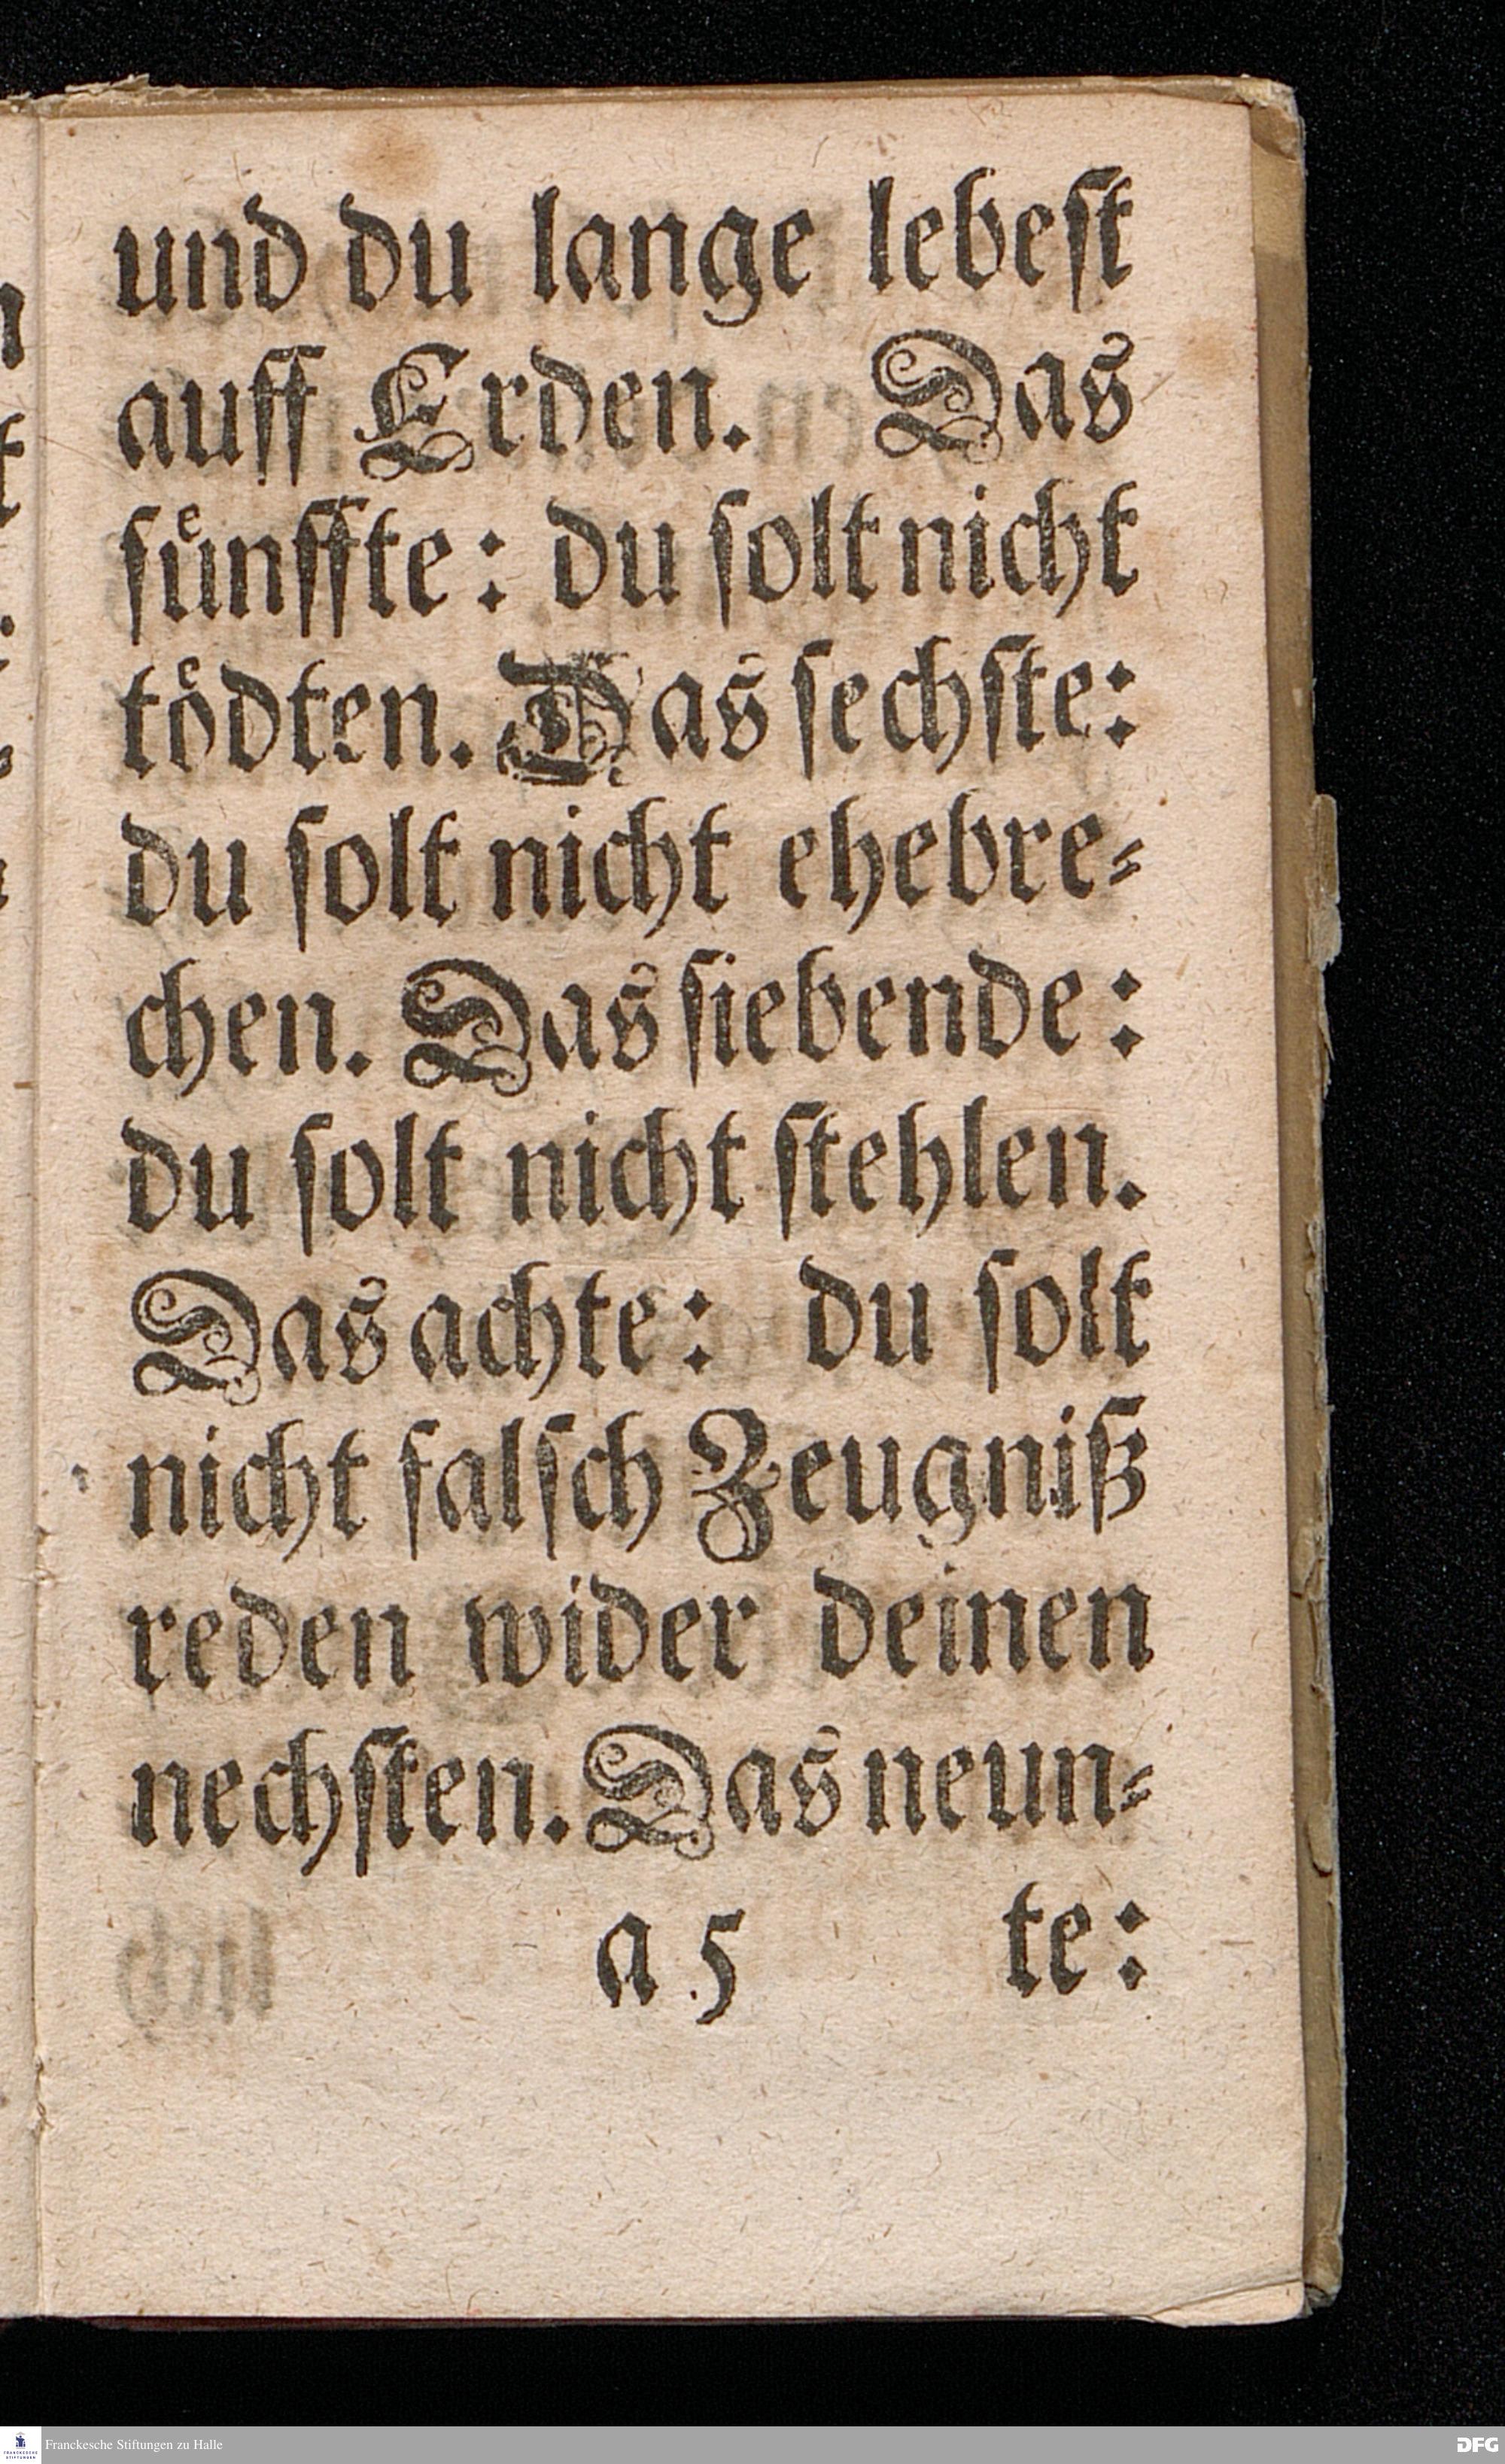 und du lange lebeſt
auff Erden. Das
fuͤnffte: du ſolt nicht
toͤdten. Das ſechſte:
du ſolt nicht ehebre⸗
chen. Das ſiebende:
du ſolt nicht ſtehlen.
Das achte: du ſolt
nicht falſch Zeugniß
reden wider deinen
nechſten. Das neun⸗
a 5 te:
Franckesche Stiftungen zu Halle
DFG